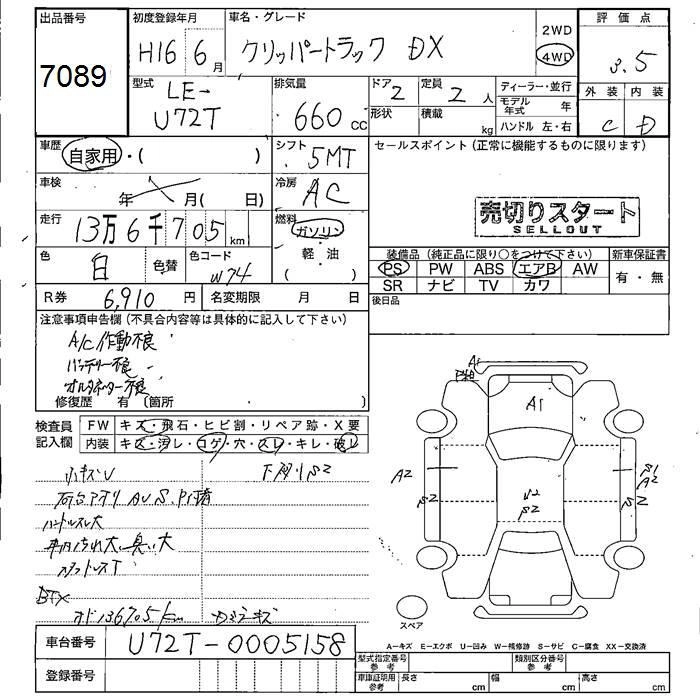 出品番号
7089
初度登録年月
H16 6月
車名・グレード
クリッパートラック DX
2WD
4WD
評価点
3.5
外装 内装
C D
型式
LE-
U72T
排気量
660 cc
ドア
2
定員
2 人
形状
積載
kg
ディーラー・並行
モデル年式 年
ハンドル 左・右
車歴
自家用・( )
シフト
5MT
セールスポイント (正常に機能するものに限ります)
売切りスタート
SELLOUT
車検
年 月( 日)
冷房
AC
走行
13万6千705km
燃料
ガソリン
軽・油
( )
色
白
色替
色コード
W74
装備品 (純正品に限り○をつけて下さい)
新車保証書
PS PW ABS エアB AW
SR ナビ TV カワ
有・無
R券 6,910円
名変期限 月 日
後日品
注意事項申告欄 (不具合内容等は具体的に記入して下さい)
A/C作動不良
バッテリー不良
オルタネーター不良
修復歴 有 (箇所
検査員
記入欄
FW キズ・飛石・ヒビ割・リペア跡・X要
内装 キズ・汚レ・コゲ・穴・スレ・キレ・破レ
小キズU
下廻りS2
ハンドルスレ大
オド136705km
A1
A1
A2
S2
U2
S2
S1
A2
S2
スペア
車台番号
U72T-0005158
A−キズ E−エクボ U−凹み W−補修跡 S−サビ C−腐食 XX−交換済
登録番号
型式指定番号
参考
類別区分番号
参考
車庫証明用
参考
長さ cm
幅 cm
高さ cm